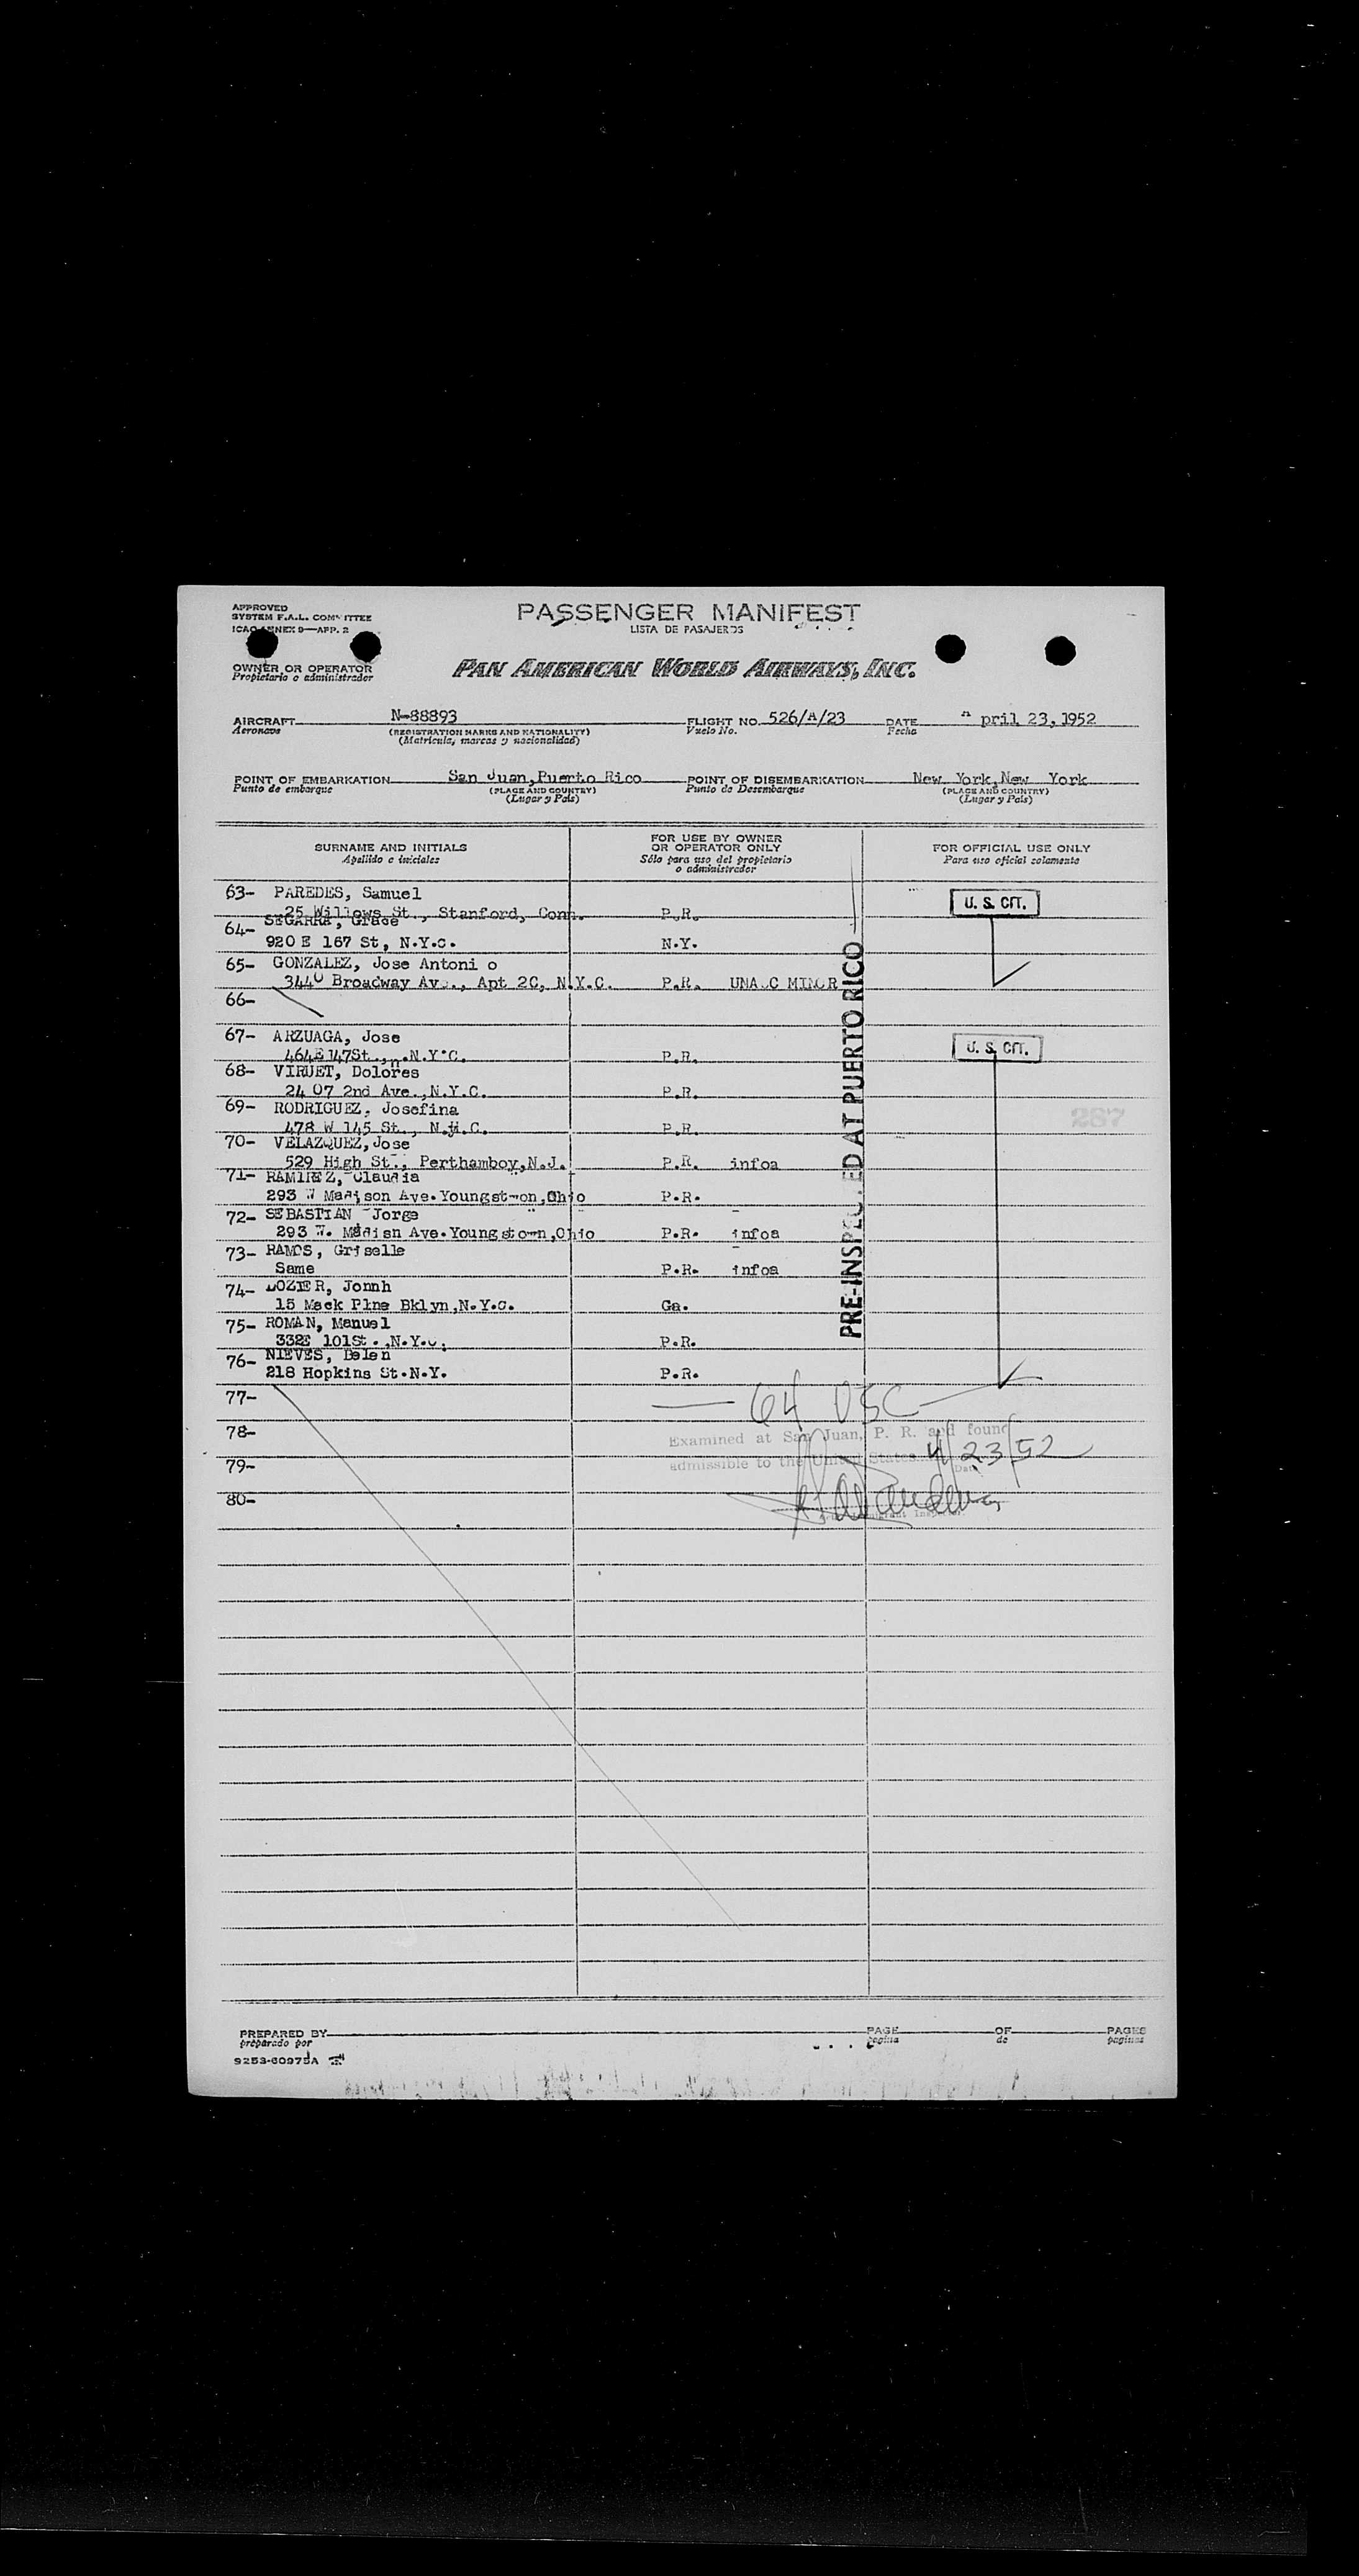 APPROVED
SYSTEM F.A.L. COMMITTEE
ICAO ANNEX 9—APP. 2
PASSENGER MANIFEST
LISTA DE PASAJEROS
OWNER OR OPERATOR
Propietario o administrador
PAN AMERICAN WORLD AIRWAYS, INC.
AIRCRAFT N-88893 FLIGHT NO. 526/A/23 DATE A pril 23, 1952
Aeronave (REGISTRATION MARKS AND NATIONALITY) Vuelo No. Fecha
(Matricula, marcas y nacionalidad)
POINT OF EMBARKATION San Juan,Puerto Rico POINT OF DISEMBARKATION New York,New York
Punto de embarque (PLACE AND COUNTRY) Punto de Desembarque (PLACE AND COUNTRY)
(Lugar y País) (Lugar y País)
SURNAME AND INITIALS FOR USE BY OWNER OR OPERATOR ONLY FOR OFFICIAL USE ONLY
Apellido e iniciales Sólo para uso del propietario o administrador Para uso oficial solamente
63- PAREDES, Samuel U. S. CIT.
25 Willows St., Stanford, Conn. P.R.
64- SEGARRA, Grace
920 E 167 St, N.Y.C. N.Y.
65- GONZALEZ, Jose Antoni o
3440 Broadway Av., Apt 2C, N.Y.C. P.R. UNA.C MINOR
66-
67- ARZUAGA, Jose U. S. CIT.
464E 147St., N.Y.C. P.R.
68- VIRUET, Dolores
24 07 2nd Ave.,N.Y.C. P.R.
69- RODRIGUEZ, Josefina 267
478 W 145 St., N.Y.C. P.R.
70- VELAZQUEZ,Jose
529 High St., Perthamboy,N.J. P.R. infoa
71- RAMIREZ, Claudia
293 W Madison Ave.Youngstown,Ohio P.R.
72- SEBASTIAN Jorge
293 W. Madisn Ave.Youngstown,Ohio P.R. infoa
73- RAMOS, Griselle
Same P.R. infoa
74- LOZIER, Jonnh
15 Mack Plne Bklyn,N.Y.C. Ga.
75- ROMAN, Manuel
332E 101St.,N.Y.C. P.R.
76- NIEVES, Belen
218 Hopkins St.N.Y. P.R.
PRE-INSPECTED AT PUERTO RICO
77-
64 USC
78-
Examined at San Juan, P. R. and found
79-
admissible to the United States. 4/23/52
Date
80-
Immigrant Inspector
PREPARED BY PAGE OF PAGES
preparado por pagina de paginas
9253-60975A